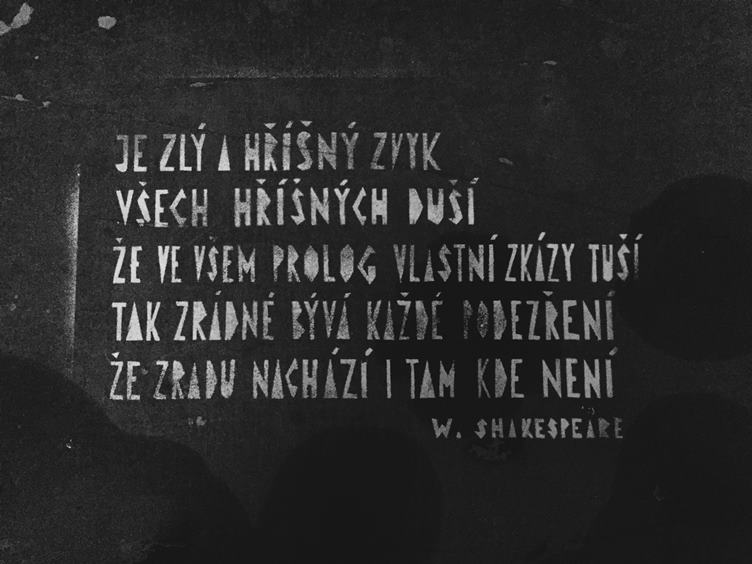 JE ZLÝ A HŘÍŠNÝ ZVYK
VŠECH HŘÍŠNÝCH DUŠÍ
ŽE VE VŠEM PROLOG VLASTNÍ ZKÁZY TUŠÍ
TAK ZRÁDNÉ BÝVÁ KAŽDÉ PODEZŘENÍ
ŽE ZRADU NACHÁZÍ I TAM KDE NENÍ
W. SHAKESPEARE